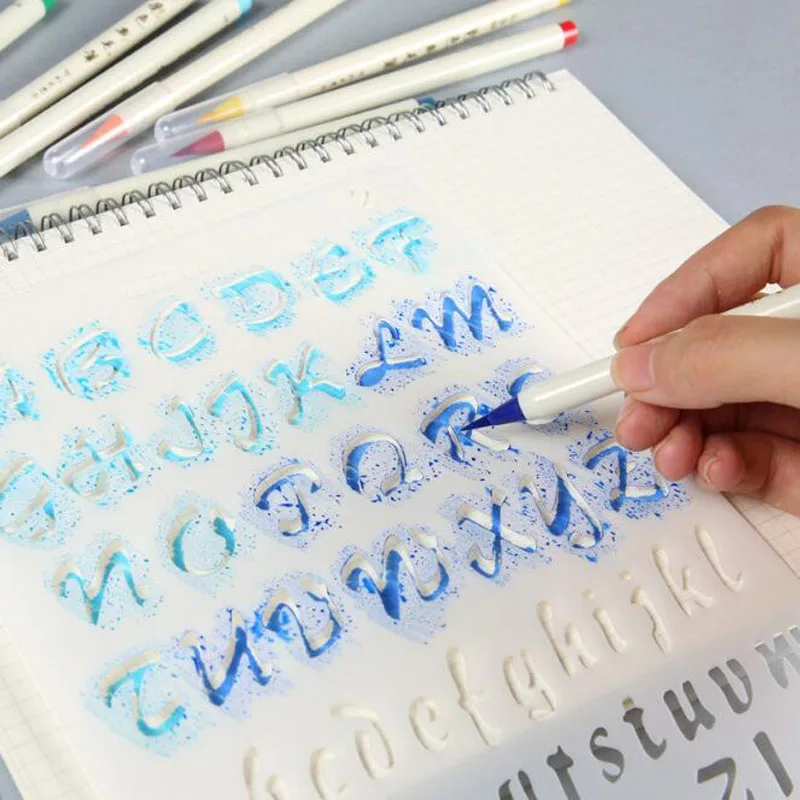 A B C D E F
G H I J K L M
N O P Q R S
T U V W X Y Z
b c d e f g h i j k l
r s t u v w